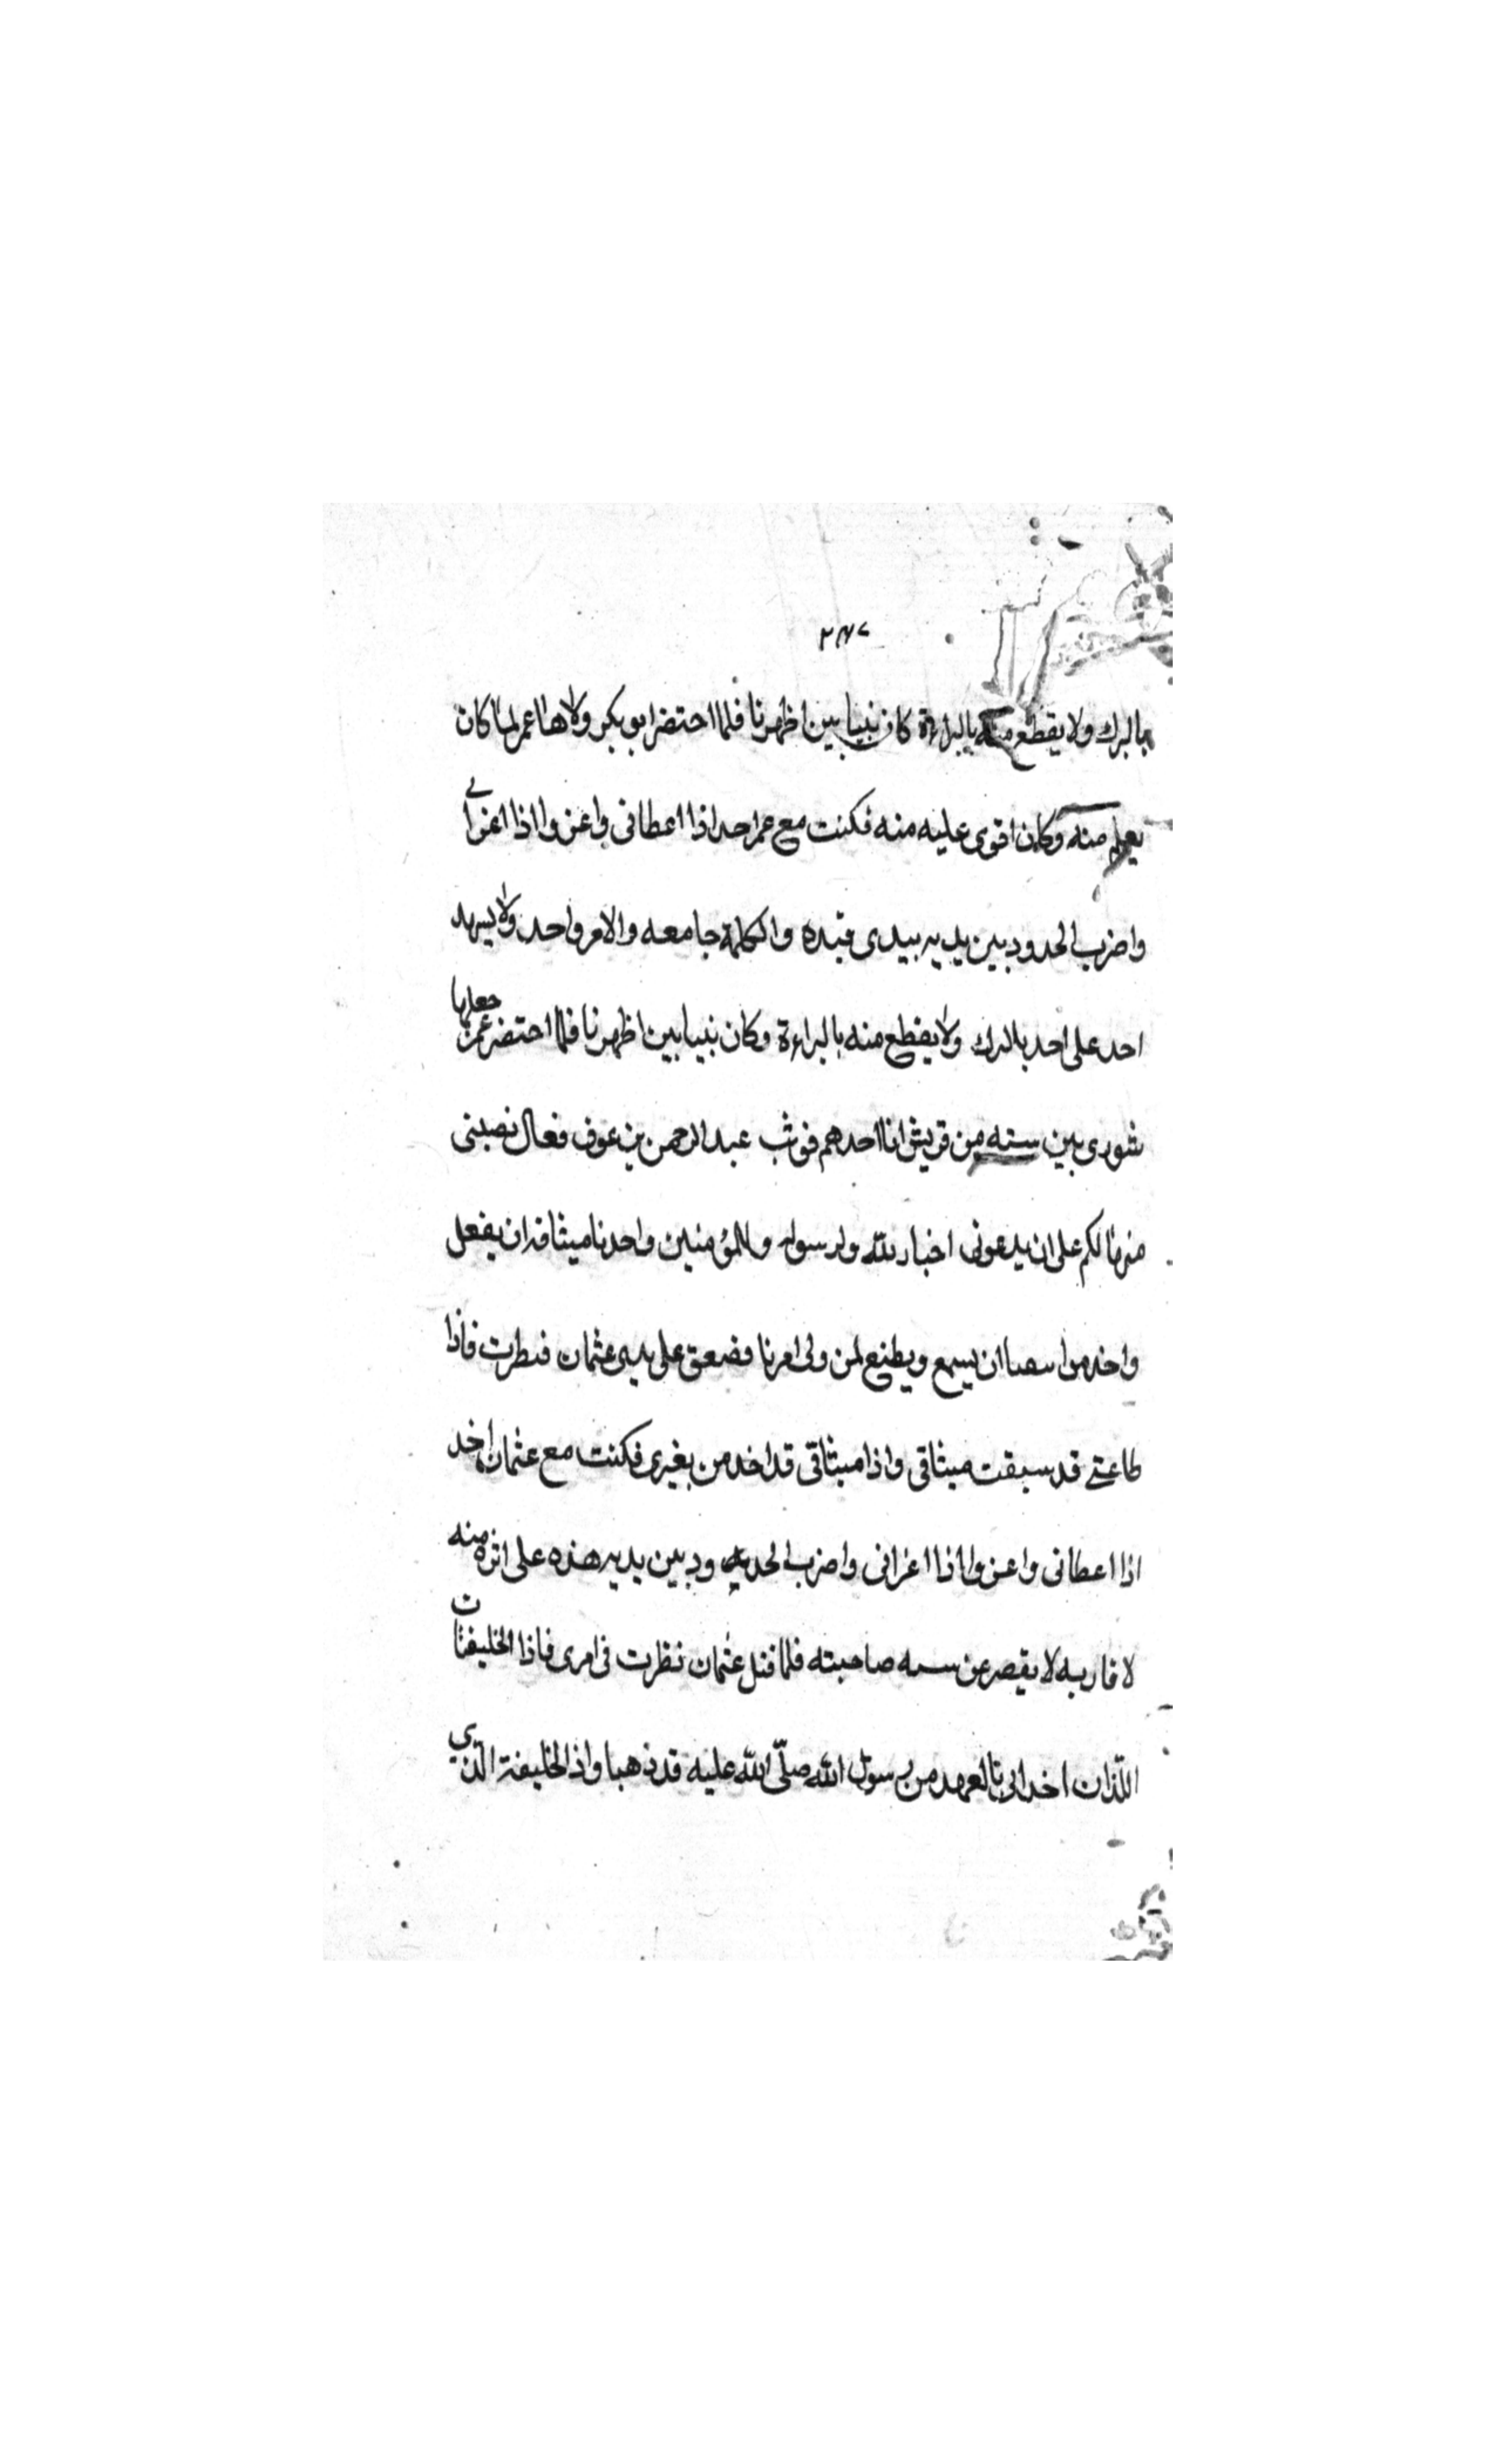 ٢٨٧
بالبرك ولا يقطع منه بالبراءة كان نبيا بين اظهرنا فلما احتضر ابو بكر ولاها عمر لما كان
يعلم منه وكان اقوى عليه منه فكنت مع عمر احد اذا اعطانى واغزوا اذا اغزانى
واضرب الحدود بين يديه بيدى هذه والكلمة جامعه والامر واحد ولا يشهد
احد على احد بالبرك ولا يقطع منه بالبراءة وكان نبيا بين اظهرنا فلما احتضر عمر جعلها
شورى بين سته من قريش انا احدهم فوثب عبد الرحمن بن عوف فقال نصيبى
منها لكم على ان يدعونى اختار لله ولرسوله وللمؤمنين واخدنا ميثاقه ان يفعل
واخد ان يسمع ويطيع لمن ولى امرنا فصعق على يدى عثمان فنظرت فاذا
طاعتے قد سبقت ميثاقى واذا ميثاقى قد اخد من بغيرى فكنت مع عثمان اخد
اذا اعطانى واغزوا اذا اغزانى واضرب الحدود بين يديه هذه على اثره منه
لا يقصر عن صاحبته فلما قتل عثمان نظرت فى امرى فاذا الخليفتان
اللذان اخدا لى بالعهد من رسول الله صلّى الله عليه قد ذهبا واذ الخليفة الذي